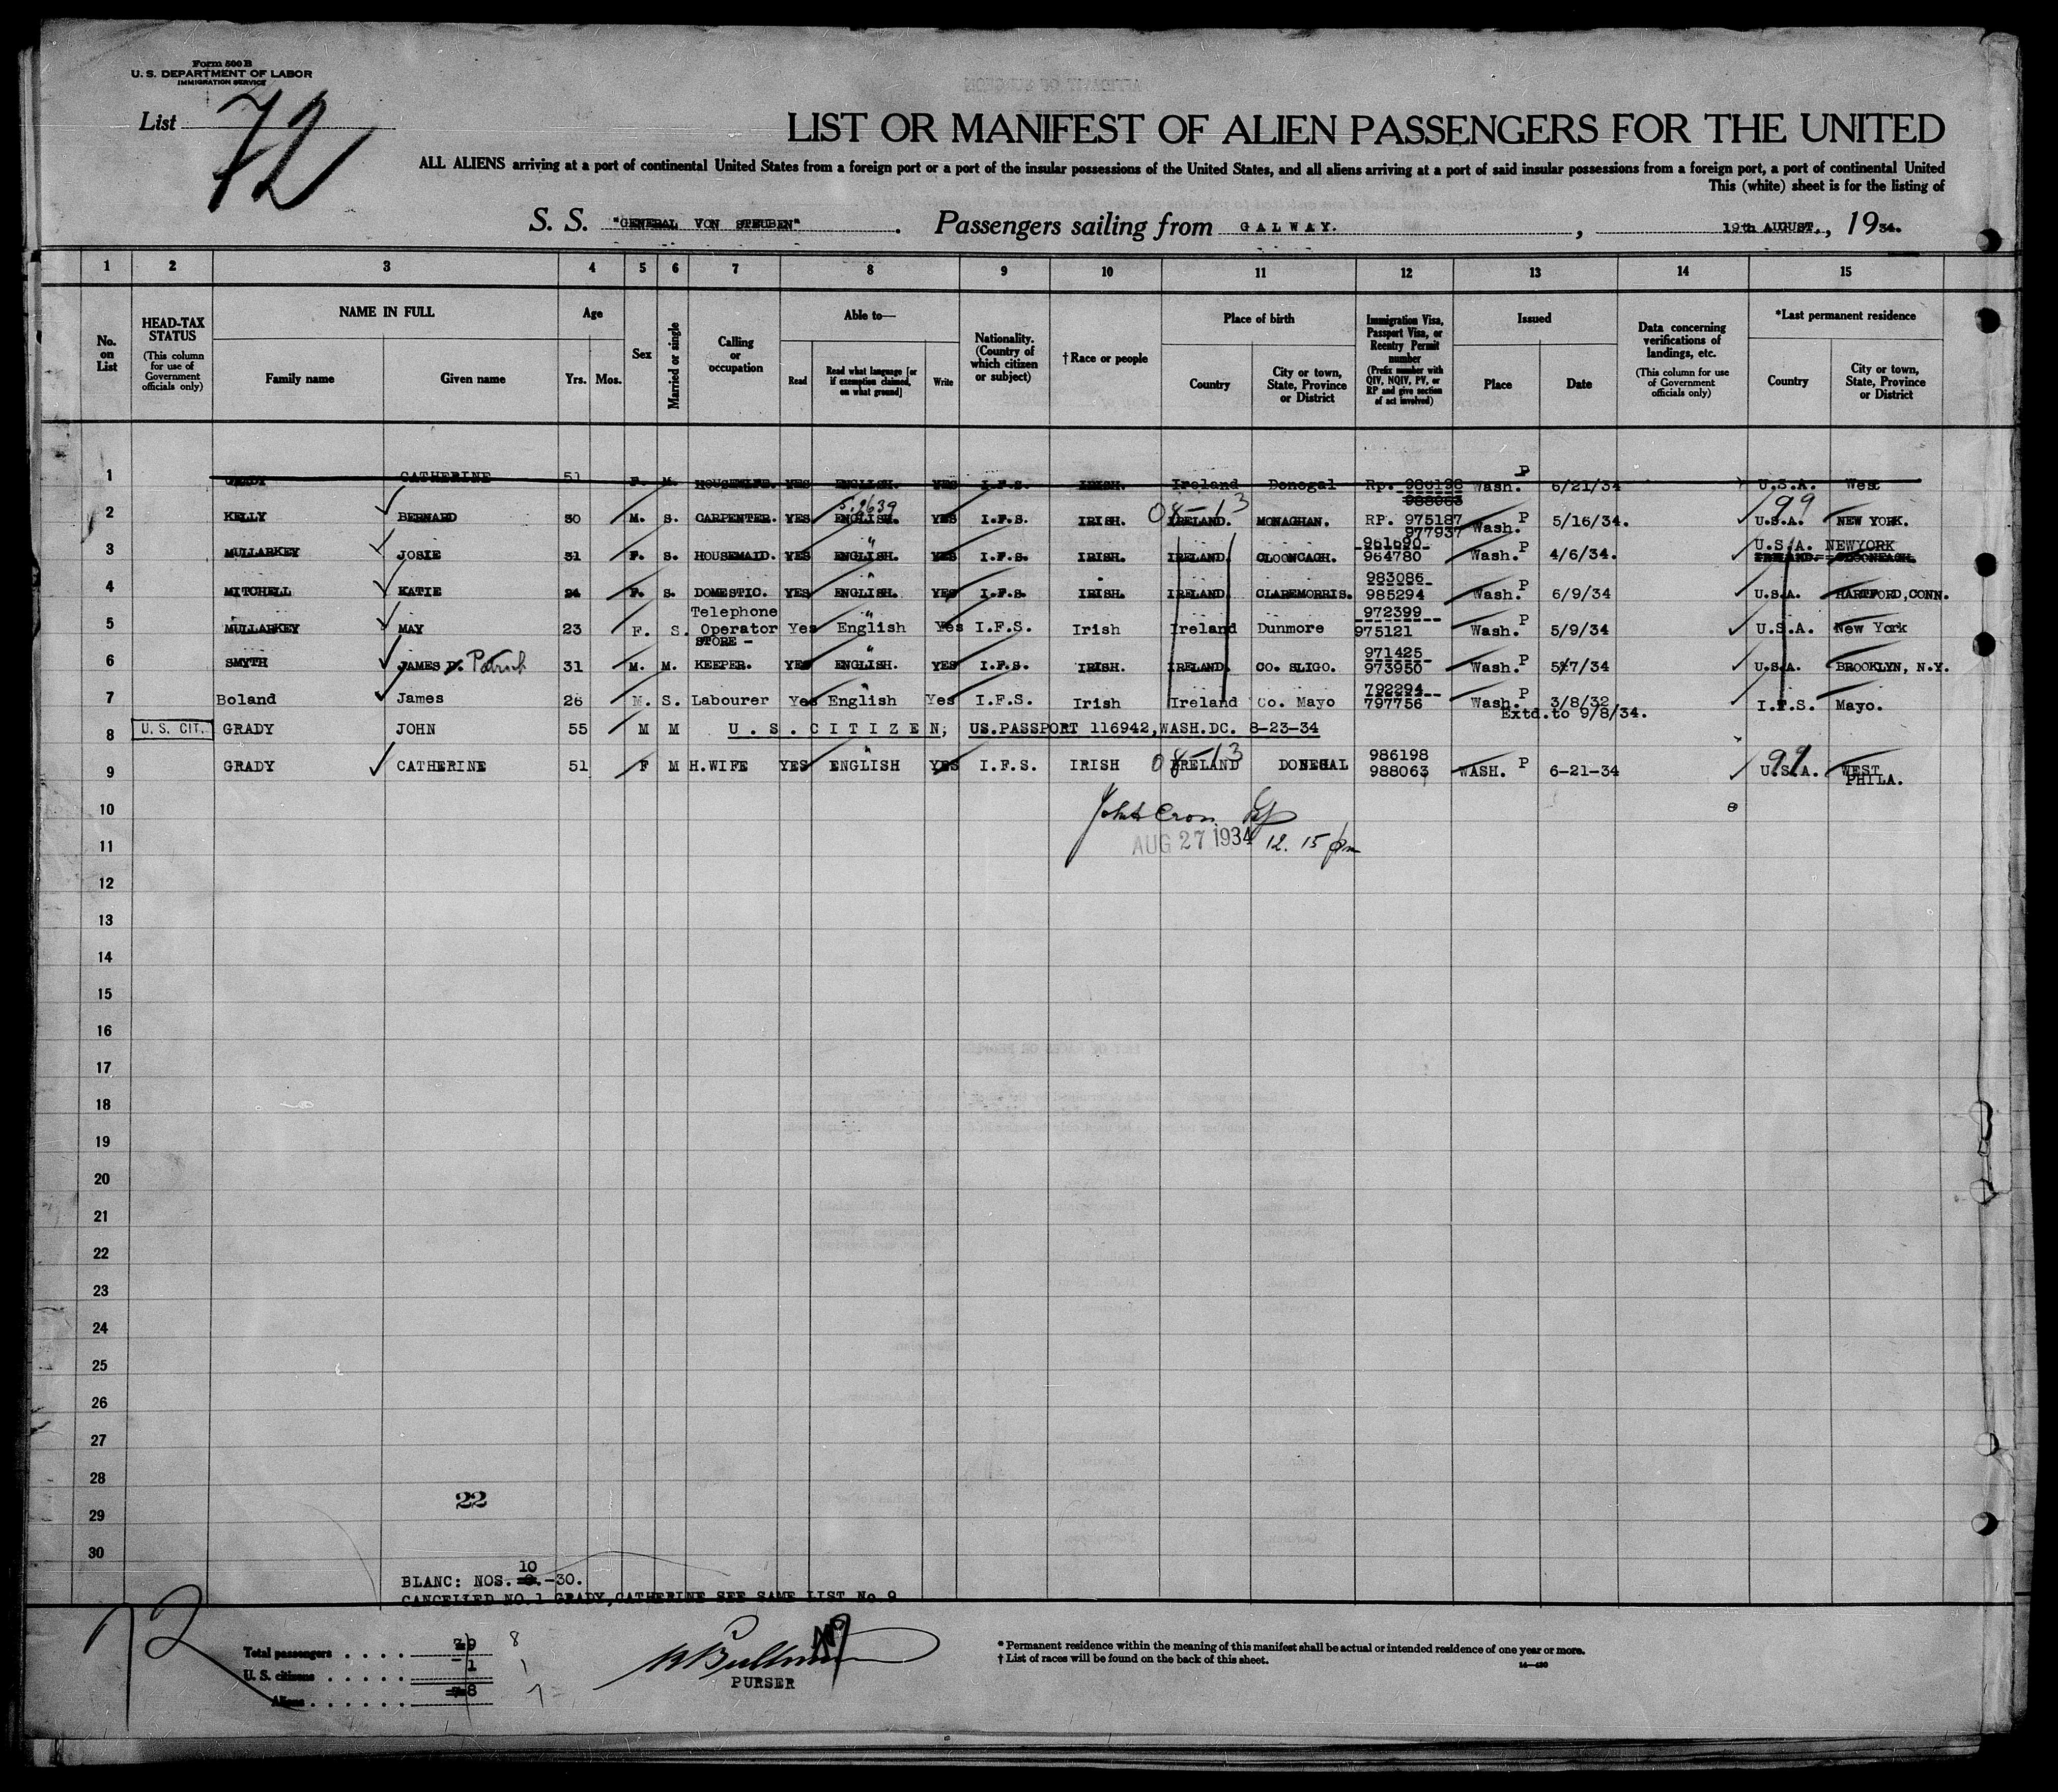 Form 500 B
U. S. DEPARTMENT OF LABOR
IMMIGRATION SERVICE
List 72
LIST OR MANIFEST OF ALIEN PASSENGERS FOR THE UNITED
ALL ALIENS arriving at a port of continental United States from a foreign port or a port of the insular possessions of the United States, and all aliens arriving at a port of said insular possessions from a foreign port, a port of continental United
This (white) sheet is for the listing of
S. S. "GENERAL VON STEUBEN". Passengers sailing from GALWAY., 19th AUGUST., 1934.
1 2 3 4 5 6 7 8 9 10 11 12 13 14 15
No. on List
HEAD-TAX STATUS (This column for use of Government officials only)
NAME IN FULL Family name Given name
Age Yrs. Mos.
Sex
Married or single
Calling or occupation
Able to— Read Read what language [or if exemption claimed, on what ground] Write
Nationality. (Country of which citizen or subject)
†Race or people
Place of birth Country City or town, State, Province or District
Immigration Visa, Passport Visa, or Reentry Permit number (Prefix number with QIV, NQIV, PV, or RP and give section of act involved)
Issued Place Date
Data concerning verifications of landings, etc. (This column for use of Government officials only)
*Last permanent residence Country City or town, State, Province or District
1 GRADY CATHERINE 51 F. M. HOUSEWIFE. YES ENGLISH. YES I.F.S. IRISH. Ireland Donegal Rp. 986198 988063 Wash. P 6/21/34 U.S.A. West
5.2639 08-13 199
2 KELLY BERNARD 30 M. S. CARPENTER. YES ENGLISH. YES I.F.S. IRISH. IRELAND. MONAGHAN. RP. 975187 977937 Wash. P 5/16/34. U.S.A. NEW YORK.
3 MULLARKEY JOSIE 31 F. S. HOUSEMAID. YES ENGLISH. YES I.F.S. IRISH. IRELAND. CLOONCAGH. 961690 964780 Wash. P 4/6/34. U.S.A. NEWYORK
4 MITCHELL KATIE 24 F. S. DOMESTIC. YES ENGLISH. YES I.F.S. IRISH. IRELAND. CLAREMORRIS. 983086 985294 Wash. P 6/9/34 U.S.A. HARTFORD,CONN.
5 MULLARKEY MAY 23 F. S. Telephone Operator Yes English Yes I.F.S. Irish Ireland Dunmore 972399 975121 Wash. P 5/9/34 U.S.A. New York
6 SMYTH JAMES P. Patrick 31 M. M. STORE - KEEPER. YES ENGLISH. YES I.F.S. IRISH. IRELAND. CO. SLIGO. 971425 973950 Wash. P 5/7/34 U.S.A. BROOKLYN, N.Y.
7 Boland James 26 M. S. Labourer Yes English Yes I.F.S. Irish Ireland Co. Mayo 792294 797756 Wash. P 3/8/32 Extd.to 9/8/34. I.F.S. Mayo.
8 U.S. CIT. GRADY JOHN 55 M M U. S. CITIZEN; US.PASSPORT 116942,WASH.DC. 8-23-34
9 GRADY CATHERINE 51 F M H.WIFE YES ENGLISH YES I.F.S. IRISH 08-13 IRELAND DONEGAL 986198 988063 WASH. P 6-21-34 99 U.S.A. WEST PHILA.
10
11 AUG 27 1934 12. 15 pm
12
13
14
15
16
17
18
19
20
21
22
23
24
25
26
27
28
22
29
30
BLANC: NOS. 10.-30.
CANCELLED NO.1 GRADY,CATHERINE SEE SAME LIST No 9
72
Total passengers . . . . 9 8
U. S. citizens . . . . . 1 1
Aliens . . . . . . 8 7
PURSER
* Permanent residence within the meaning of this manifest shall be actual or intended residence of one year or more.
† List of races will be found on the back of this sheet.
14—430